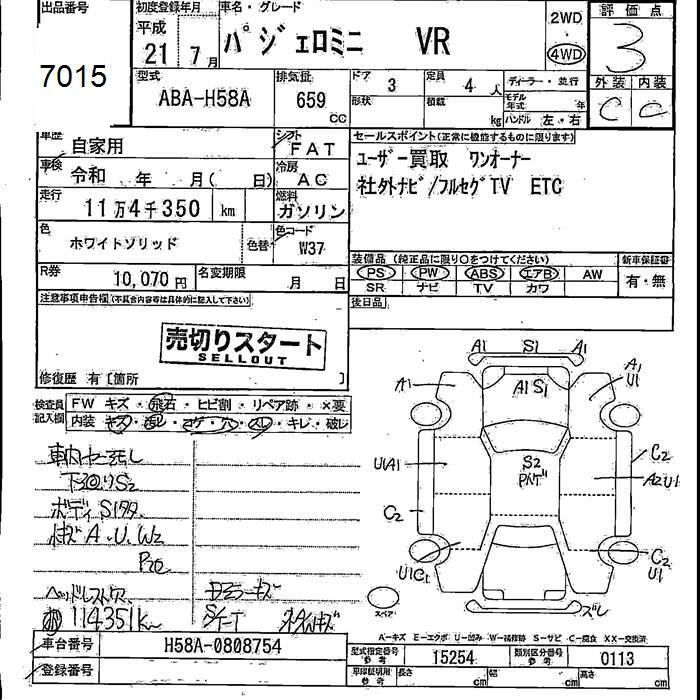 出品番号 初度登録年月 車名・グレード 2WD 評価点
平成 21年 7月 パジェロミニ VR 4WD 3
7015
型式 排気量 ドア 3 定員 4人 ディーラー・並行 外装 内装
ABA-H58A 659 CC 形状 積載 kg モデル年式 年 C C
ハンドル 左・右
車歴 自家用 シフト FAT セールスポイント(正常に機能するものに限ります)
車検 令和 年 月( 日) 冷房 AC ユーザー買取 ワンオーナー
走行 11万4千350 km 燃料 ガソリン 社外ナビ/フルセグTV ETC
色 ホワイトソリッド 色替 色コード W37
装備品(純正品に限り○をつけてください) 新車保証書
R券 10,070円 名変期限 月 日 PS PW ABS エアB AW 有・無
SR ナビ TV カワ
注意事項申告欄(不具合内容等は具体的に記入して下さい) 後日品
売切りスタート
SELLOUT
修復歴 有[箇所 ]
検査員記入欄 FW キズ・飛石・ヒビ割・リペア跡・×要
内装 キズ・汚レ・コゲ・穴・スレ・キレ・破レ
A1 S1 A1
A1 A1 S1 A1 U1
U1A1 S2 C2
A2U1
C2
U1C1 C2 U1
スペア ズレ
下回りS2
ボディS1タタ
キズA・U・W2
114351km
A-キズ E-エクボ U-凹み W-補修跡 S-サビ C-腐食 XX-交換済
車台番号 H58A-0808754 型式指定番号 参考 15254 類別区分番号 参考 0113
登録番号 車印証明用 参考 長さ cm 幅 cm 高さ cm